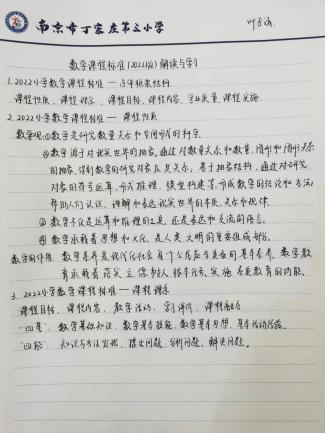 南京市丁家庄第二小学
数学课程标准(2022版)解读与学习
1. 2022小学数学课程标准 — 总体框架结构
课程性质、课程理念、课程目标、课程内容、学业质量、课程实施
2. 2022小学数学课程标准 — 课程性质
数学观:①数学是研究数量关系和空间形式的科学
②数学源于对现实世界的抽象,通过对数量和数量关系、图形和图形关系
的抽象,得到数学的研究对象及其关系;基于抽象结构,通过对研究
对象的符号运算、形式推理、模型构建等,形成数学的结论和方法,
帮助人们认识、理解和表达现实世界的本质、关系和规律。
③数学不仅是运算和推理的工具,还是表达和交流的语言。
④数学承载着思想和文化,是人类文明的重要组成部分。
数学的作用:数学素养是现代社会每个公民应当具备的基本素养,数学教
育承载着落实立德树人根本任务、实施素质教育的功能。
3. 2022小学数学课程标准 — 课程理念
课程目标、课程内容、教学活动、学习评价、课程融合
"四基":数学基础知识、数学基本技能、数学基本思想、基本活动经验。
"四能":发现、提出问题、分析问题、解决问题。